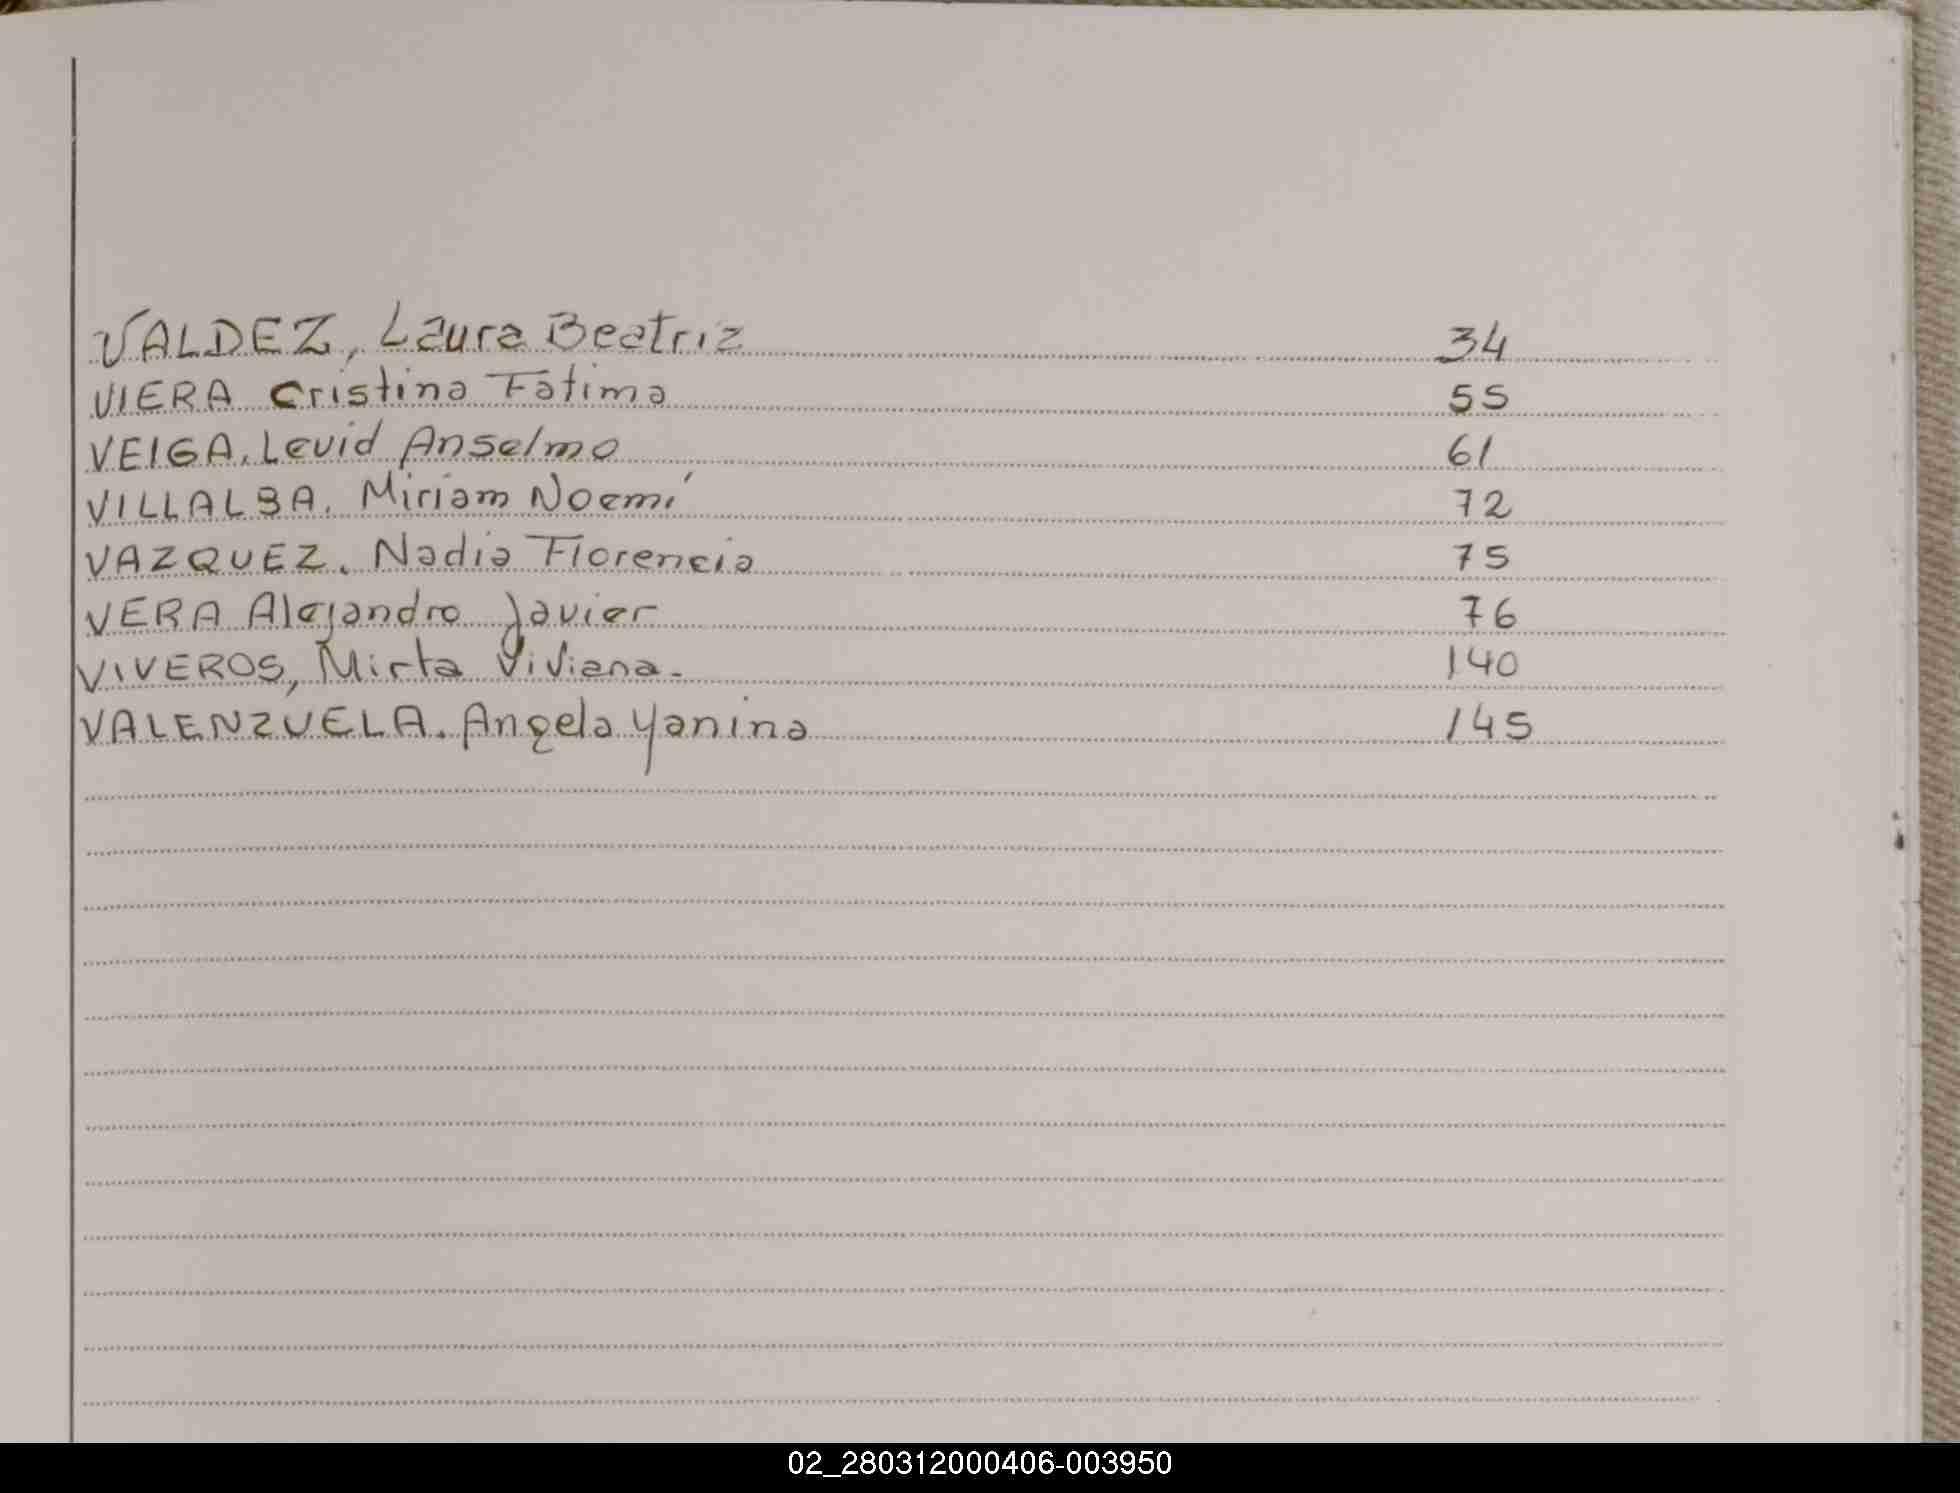 VALDEZ, Laura Beatriz 34
VIERA Cristina Fatima 55
VEIGA. Levid Anselmo 61
VILLALBA. Miriam Noemí 72
VAZQUEZ. Nadia Florencia 75
VERA Alejandro Javier 76
VIVEROS, Mirta Viviana. 140
VALENZUELA. Angela Yanina 145
02_280312000406-003950